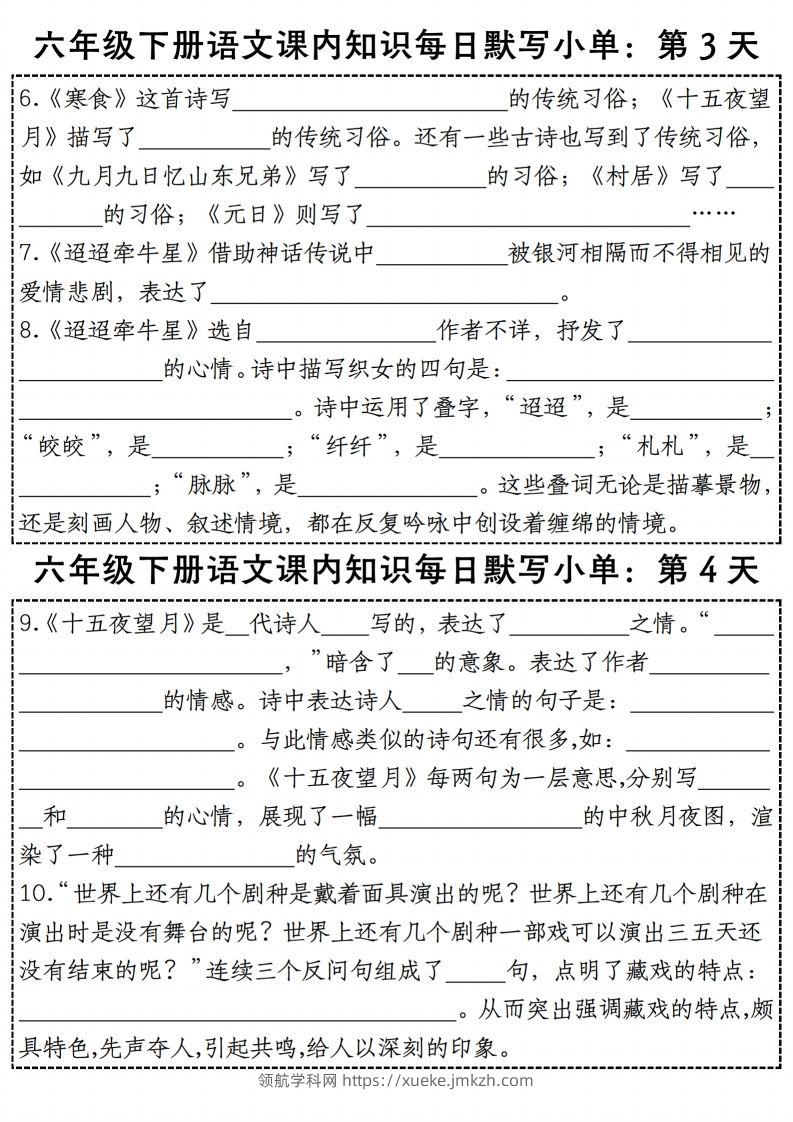 六年级下册语文课内知识每日默写小单：第3天
6.《寒食》这首诗写_______________________的传统习俗；《十五夜望
月》描写了___________的传统习俗。还有一些古诗也写到了传统习俗，
如《九月九日忆山东兄弟》写了___________的习俗；《村居》写了____
_______的习俗；《元日》则写了___________________________……
7.《迢迢牵牛星》借助神话传说中___________被银河相隔而不得相见的
爱情悲剧，表达了_____________________________。
8.《迢迢牵牛星》选自_______________作者不详，抒发了____________
____________的心情。诗中描写织女的四句是：______________________
_______________________。诗中运用了叠字，“迢迢”，是___________；
“皎皎”，是___________；“纤纤”，是_____________；“札札”，是__
___________；“脉脉”，是_______________。这些叠词无论是描摹景物，
还是刻画人物、叙述情境，都在反复吟咏中创设着缠绵的情境。
六年级下册语文课内知识每日默写小单：第4天
9.《十五夜望月》是__代诗人____写的，表达了__________之情。“_____
______________________，”暗含了___的意象。表达了作者__________
____________的情感。诗中表达诗人_____之情的句子是：____________
__________________。与此情感类似的诗句还有很多,如：____________
__________________。《十五夜望月》每两句为一层意思,分别写______
__和________的心情，展现了一幅_________________的中秋月夜图，渲
染了一种_______________的气氛。
10.“世界上还有几个剧种是戴着面具演出的呢？世界上还有几个剧种在
演出时是没有舞台的呢？世界上还有几个剧种一部戏可以演出三五天还
没有结束的呢？”连续三个反问句组成了_____句，点明了藏戏的特点：
____________________________________。从而突出强调藏戏的特点,颇
具特色,先声夺人,引起共鸣,给人以深刻的印象。
领航学科网 https://xueke.jmkzh.com